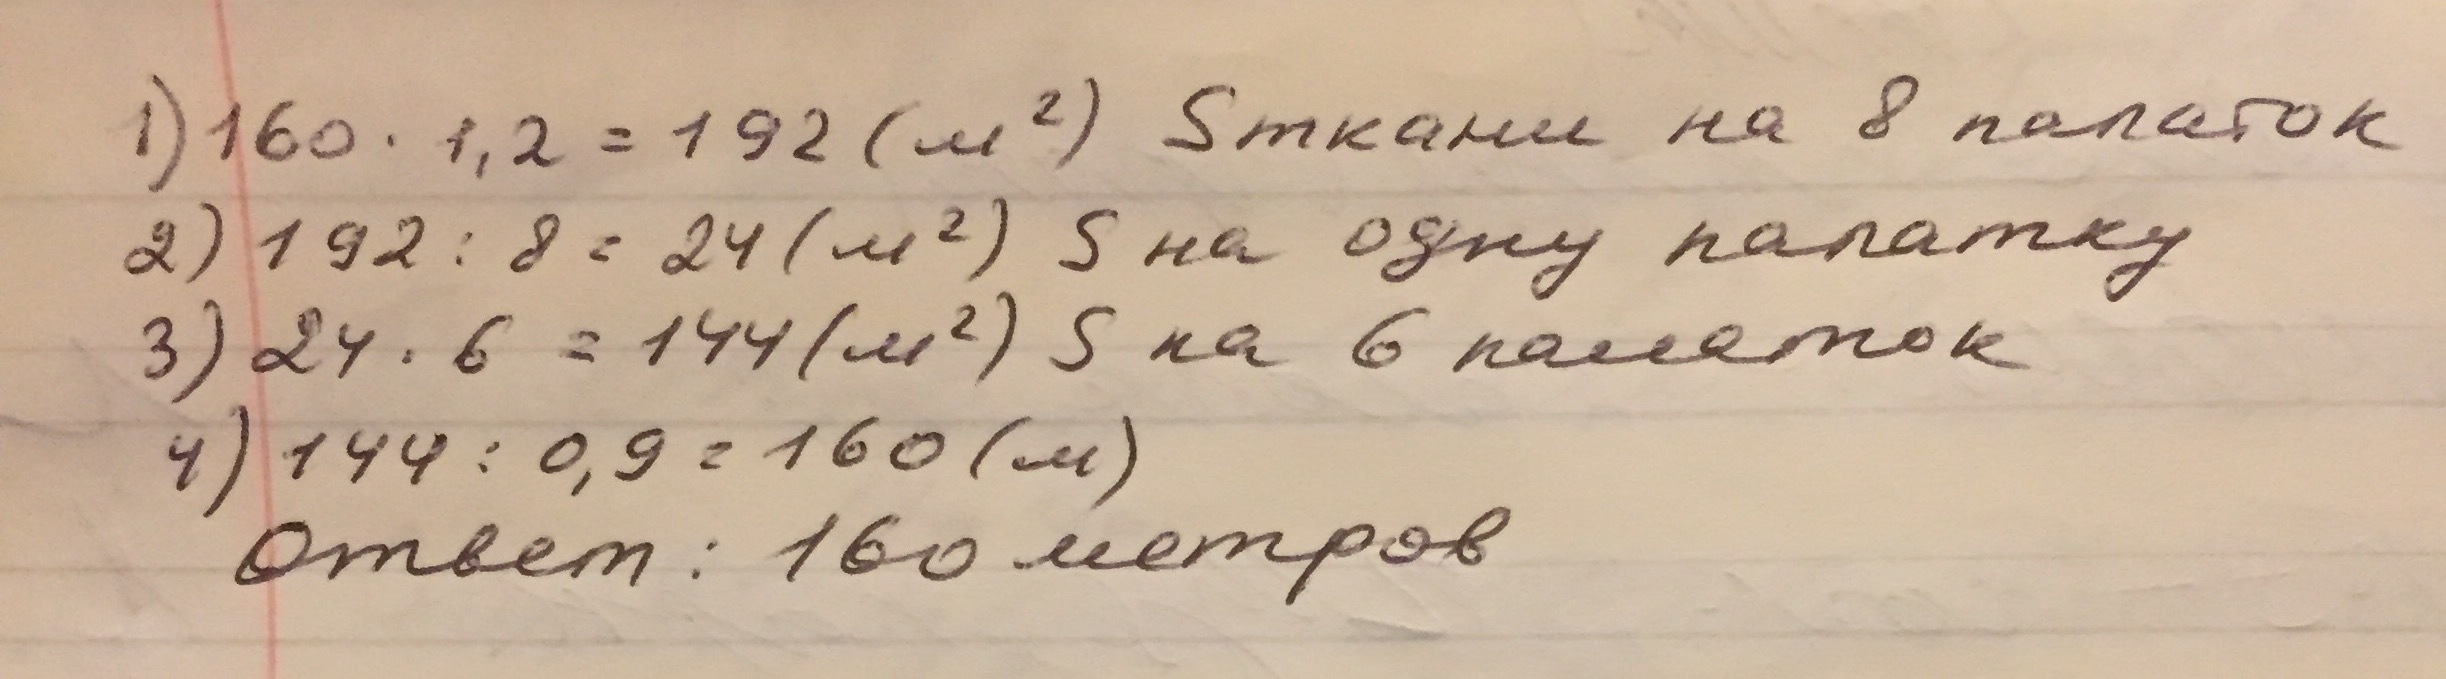 1) 160 · 1,2 = 192 (м²) S ткани на 8 палаток
2) 192 : 8 = 24 (м²) S на одну палатку
3) 24 · 6 = 144 (м²) S на 6 палаток
4) 144 : 0,9 = 160 (м)
Ответ: 160 метров